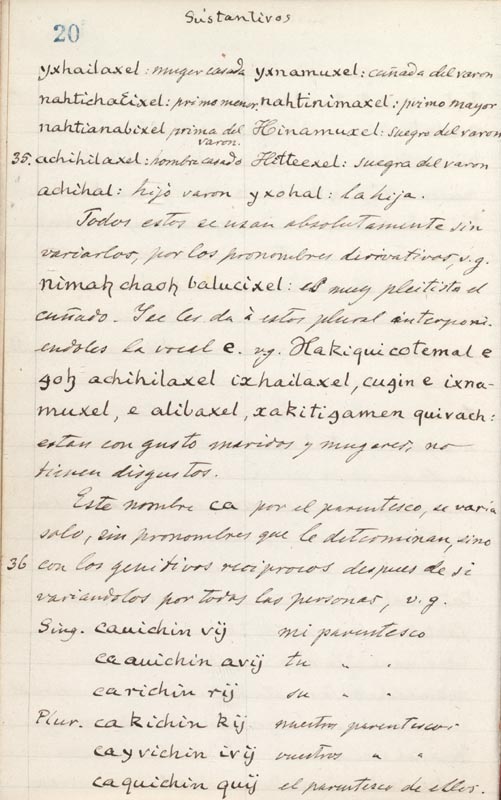 Sustantivos
20
yxhailaxel: muger casada yxnamuxel: cuñada del varon
nahtichaꜪixel: primo menor. nahtinimaxel: primo mayor
nahtianabixel prima del varon. Hinamuxel: suegro del varon
35. achihilaxel: hombre casado Hitteexel: suegra del varon
achihal: hijo varon yxohal: la hija.
Todos estos se usan absolutamente sin
variarlos, por los pronombres derivativos, v.g.
nimaꜧ chaoꜧ balucixel: es muy pleitista el
cuñado. I se les da à estos plural interponi-
endoles la vocal e. v.g. Hakiquicotemal e
goꜧ achihilaxel ixhailaxel, cugin e ixna-
muxel, e alibaxel, xakitigamen quivach:
estan con gusto maridos y mugeres, no
tienen disgustos.
Este nombre ca por el parentesco, se varia
solo, sin pronombres que le determinan, sino
36 con los genitivos reciprocos despues de si
variandolos por todas las personas, v.g.
Sing. cauichin vij mi parentesco
ca auichin avij tu " "
ca richin rij su " "
Plur. ca kichin kij nuestros parentescos
ca yvichin ivij vuestros " "
ca quichin quij el parentesco de ellos.